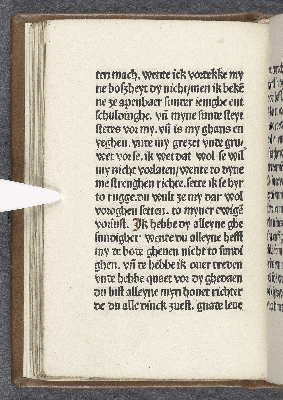 ten mach. wente ick vortekke my
ne boszheyt dy nicht/men ik bekē
ne ze apenbaer sunter ienighe ent
schuldinghe. vn̄ myne sunte steyt
stedes vor my. vn̄ is my ghans en
yeghen. vnte my grezet vnte gru
wet vor se. ik wet dat wol se wil
my nicht vorlaten/wente to dyne
me strenghen richte. sette ik se byr
to rugge. du wult ze my dar wol
vor oghen setten. to myner ewigē
vorlust. Ik hebbe dy alleyne ghe
sundighet wente du alleyne hefft
my de bote ghenen nicht to sundi
ghen. vn̄ te hebbe ik ouer treden
vnte hebbe quaet vor dy ghedaen
du bist alleyne myn houet richter
de du alle dinck zuest. gnade leue